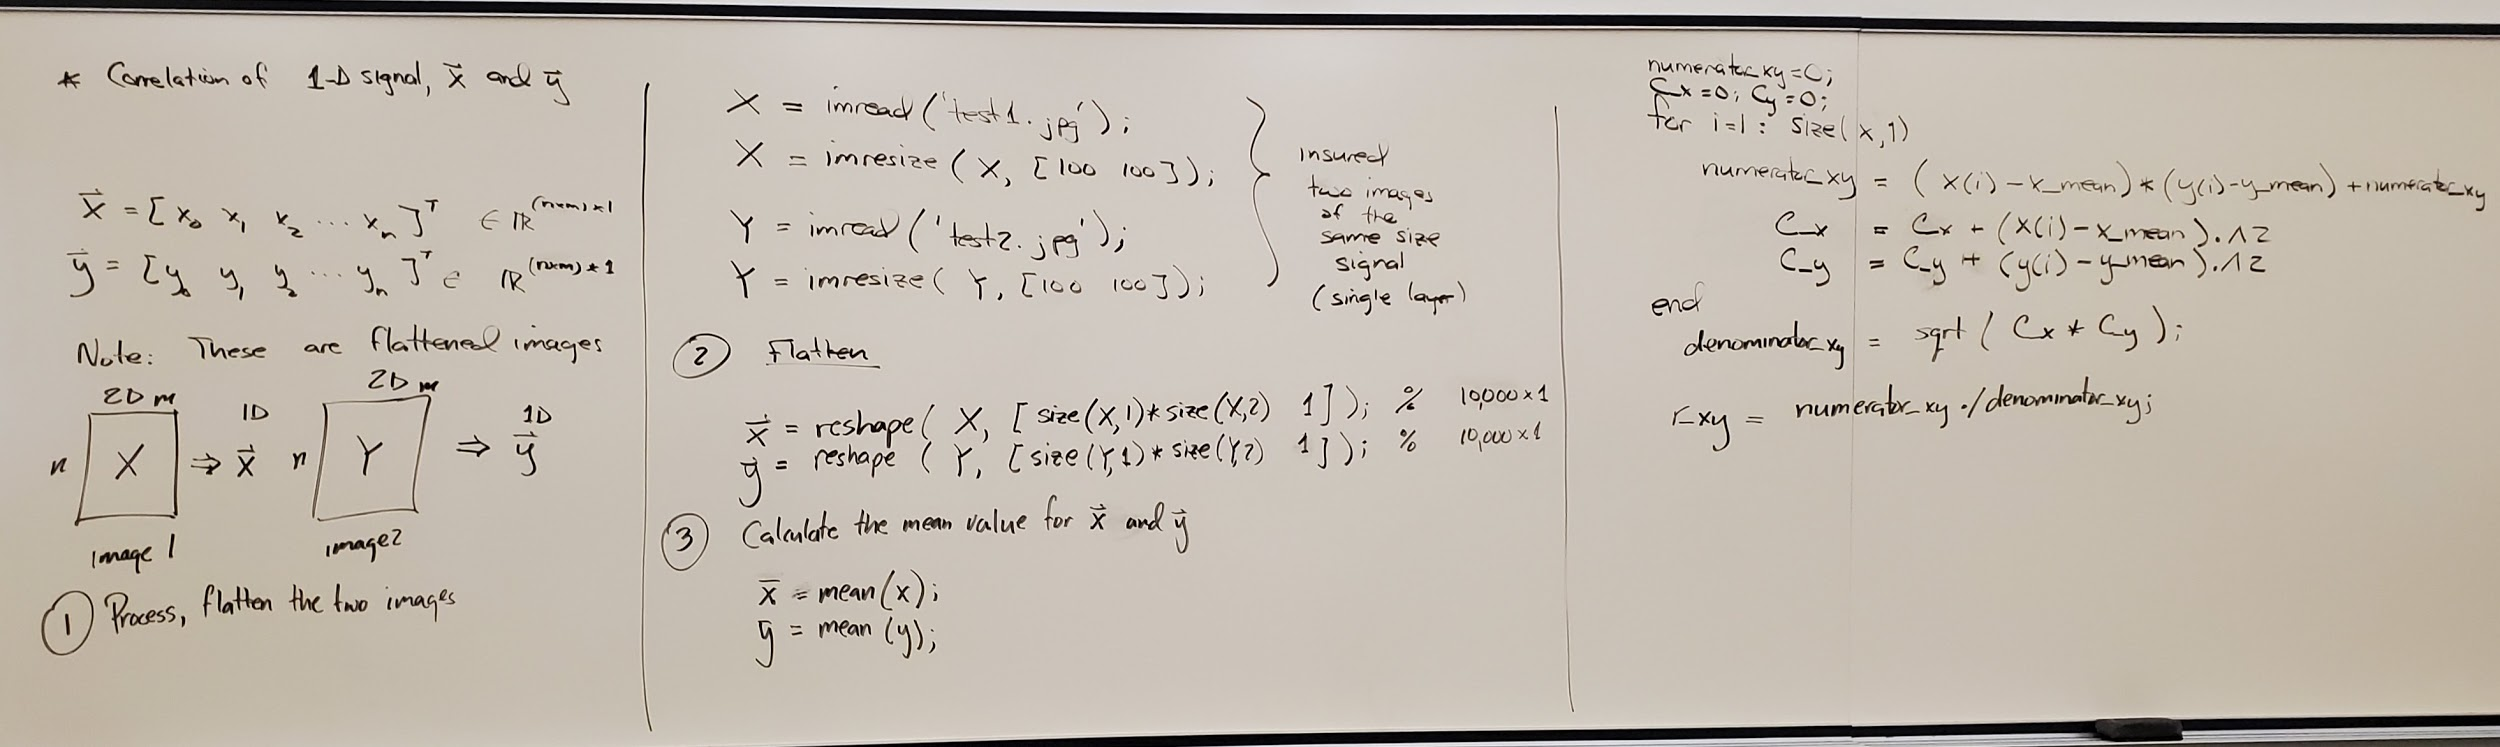 * Correlation of 1-D signal, x⃗ and y⃗
x⃗ = [x₀ x₁ x₂ ... xₙ]ᵀ ∈ ℝ^(n×m)×1
y⃗ = [y₀ y₁ y₂ ... yₙ]ᵀ ∈ ℝ^(n×m)*1
Note: These are flattened images
2D m 1D 2D m 1D
n X ⇒ x⃗ n Y ⇒ y⃗
image 1 image2
① Process, flatten the two images
X = imread('test1.jpg');
X = imresize(X, [100 100]);
Y = imread('test2.jpg');
Y = imresize(Y, [100 100]);
insured
two images
of the
same size
signal
(single layer)
② Flatten
x⃗ = reshape( X, [size(X,1)*size(X,2) 1]); % 10,000×1
y⃗ = reshape( Y, [size(Y,1)*size(Y,2) 1]); % 10,000×1
③ Calculate the mean value for x⃗ and y⃗
x̅ = mean(x);
y̅ = mean(y);
numerator_xy=0;
C_x=0; C_y=0;
for i=1: size(x,1)
numerator_xy = (x(i)-x_mean)*(y(i)-y_mean)+numerator_xy
C_x = C_x + (x(i)-x_mean).^2
C_y = C_y + (y(i)-y_mean).^2
end
denominator_xy = sqrt(C_x * C_y);
r_xy = numerator_xy./denominator_xy;